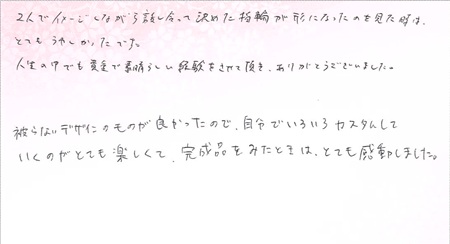 2人でイメージしながら話し合って決めた指輪が形になったのを見た時は、
とてもうれしかったです。
人生の中でも貴重で素晴らしい経験をさせて頂き、ありがとうございました。
被らないデザインのものが良かったので、自分でいろいろカスタムして
いくのがとても楽しくて、完成品をみたときは、とても感動しました。